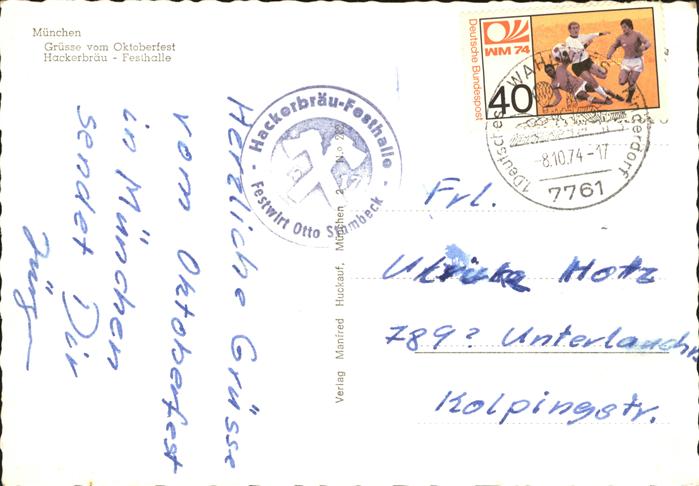 München
Grüsse vom Oktoberfest
Hackerbräu - Festhalle
Herzliche Grüsse
vom Oktoberfest
in München
sendet Dir
Jürgen
· Hackerbräu-Festhalle ·
Festwirt Otto Stumbeck
Verlag Manfred Huckauf, München 2
Deutsche Bundespost
WM 74
40
1. Deutsches
8.10.74-17
7761
Frl.
Ulrike Hotz
789? Unterlauchr
Kolpingstr.